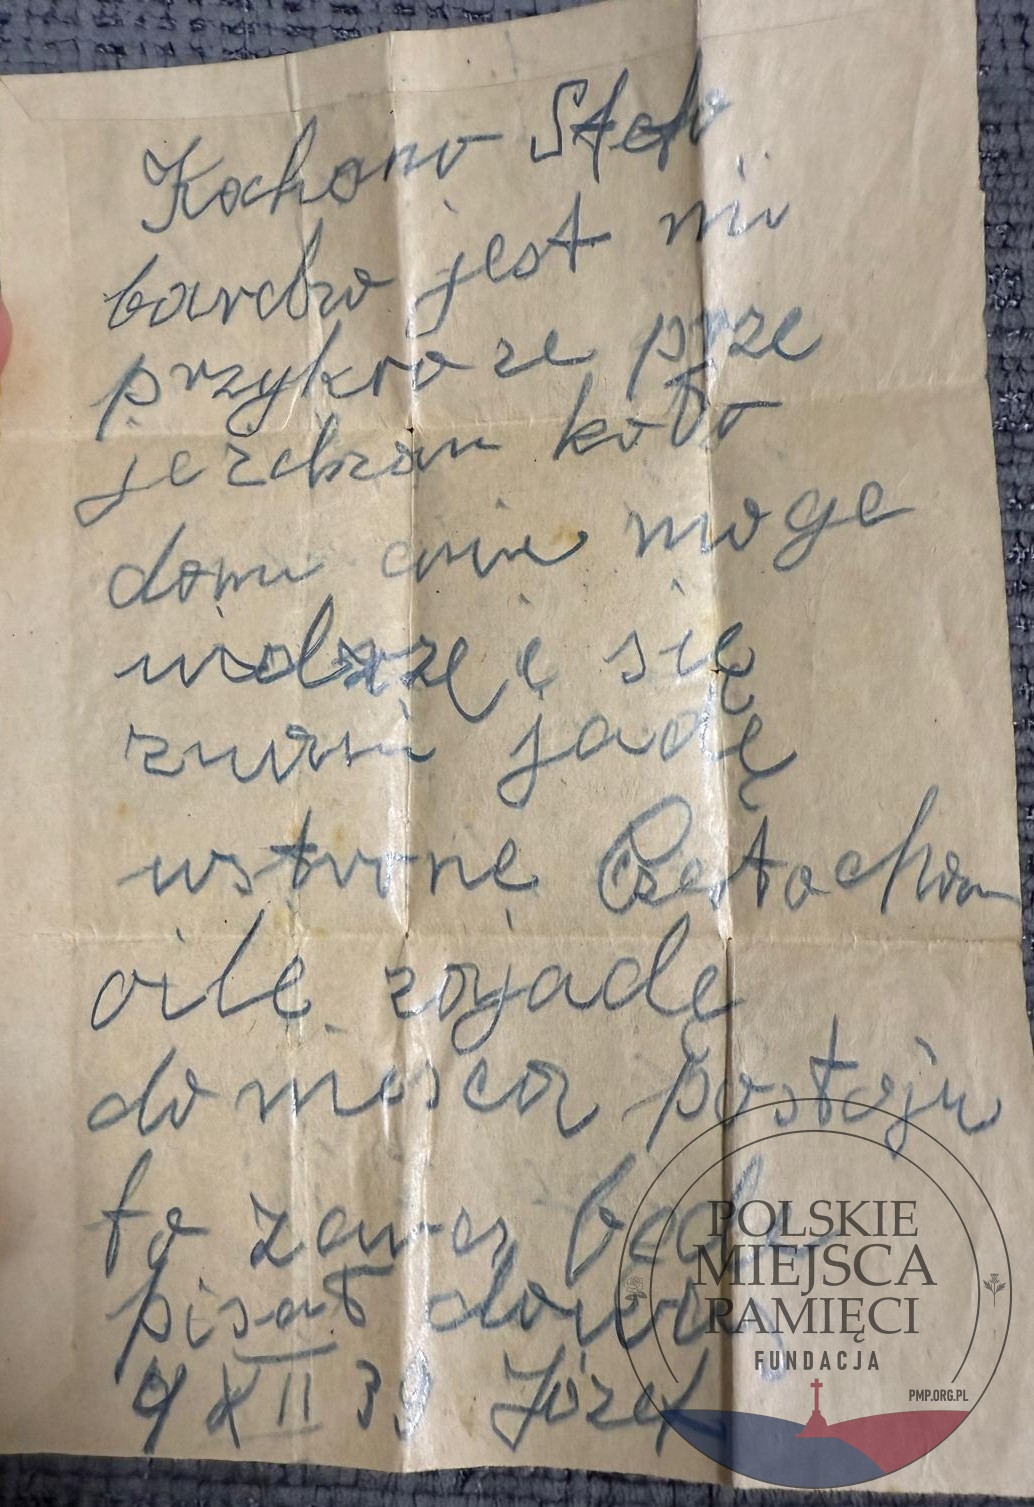 Kochano Stefo
bardzo jest mi
przykro ze prze
jerdzam koło
domu anie moge
widzzę ę się
zwami jadę
wstronę Czestochowa
oile zojadę
do mejscoz postoju
to zawos będe
pisał dowos
9 XII 39 Józef
POLSKIE
MIEJSCA
PAMIĘCI
FUNDACJA
PMP.ORG.PL